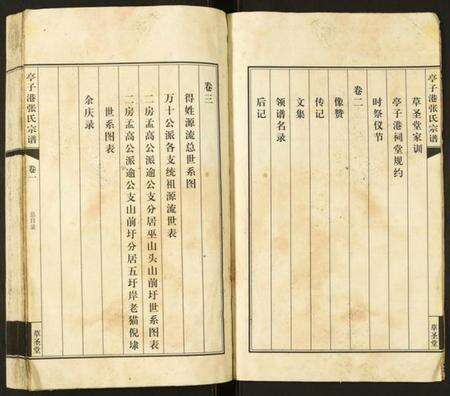 亭子港张氏宗谱
草圣堂
草圣堂家训
亭子港祠堂规约
时祭仪节
卷二
像赞
传记
文集
领谱名录
后记
卷三
得姓源流总世系图
万十公派各支统祖源流世表
二房孟高公派逾公支分居巫山头山前圩世系图表
二房孟高公派逾公支山前圩分居五圩岸老猫倪埭
世系图表
余庆录
亭子港张氏宗谱
卷一
总目录
草圣堂